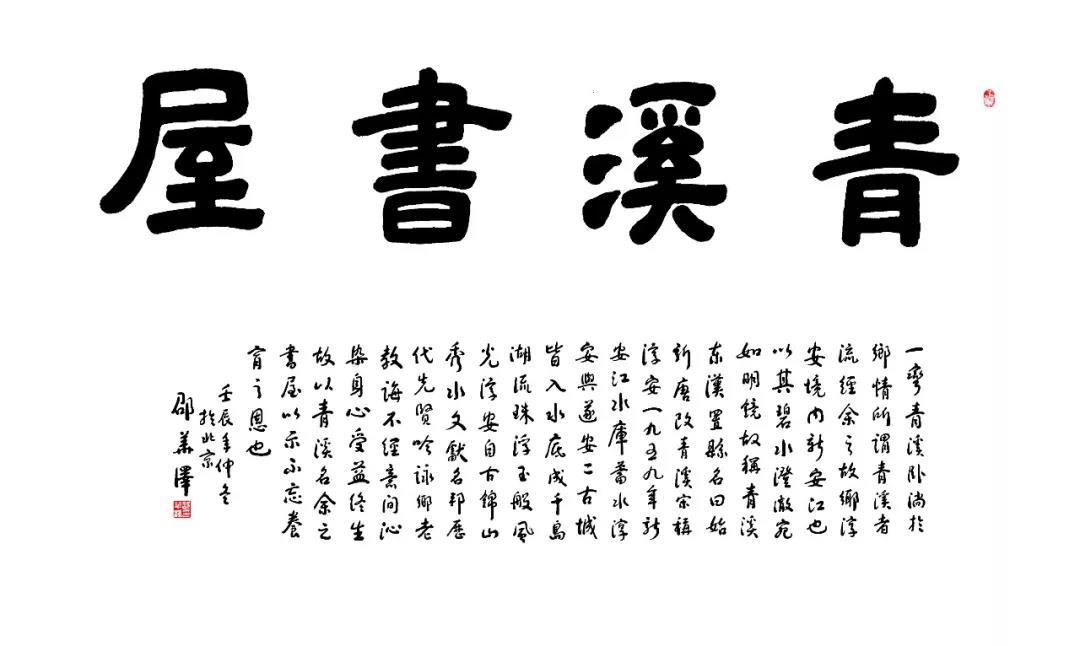 青溪書屋
一彎青溪卧淌於
鄉情所謂青溪者
流經余之故鄉淳
安境内新安江也
以其碧水澄澈宛
如明鏡故稱青溪
東漢置縣名曰始
新唐改青溪宋稱
淳安一九五九年新
安江水庫蓄水淳
安與遂安二古城
皆入水底成千島
湖流珠浮玉般風
光淳安自古錦山
秀水文獻名邦歷
代先賢吟詠鄉老
教誨不經意間沁
染身心受益終生
故以青溪名余之
書屋以示不忘養
育之恩也
壬辰年仲冬
於北京
邵華澤